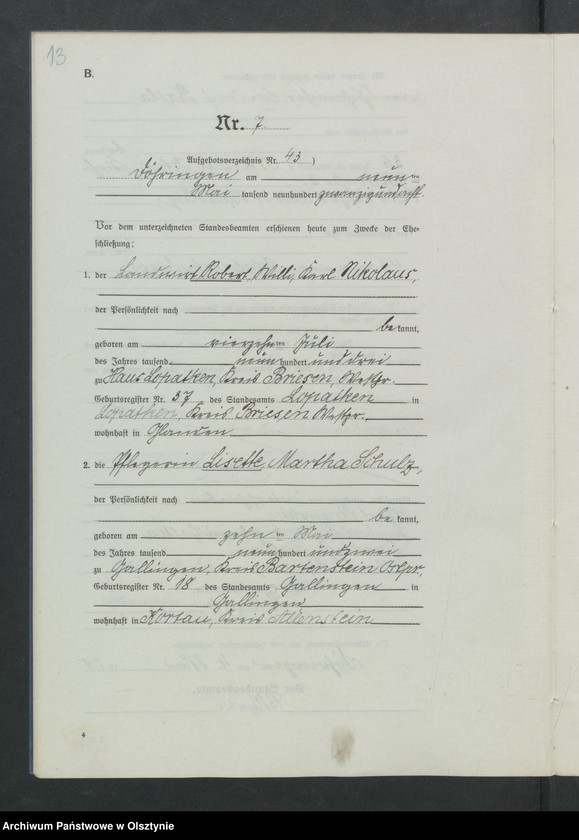 13
B.
Nr. 7.
Aufgebotsverzeichnis Nr. 43 )
Döhringen am neunten
Mai tausend neunhundert zwanzigundacht.
Vor dem unterzeichneten Standesbeamten erschienen heute zum Zwecke der Ehe-
schließung:
1. der Landwirt Robert, Willi, Karl Nikolaus,
der Persönlichkeit nach
be kannt,
geboren am vierzehnten Juli
des Jahres tausend neunhundert unddrei
zu Haus Lopatken, Kreis Briesen, Westpr.
Geburtsregister Nr. 37 des Standesamts Lopatken in
Lopatken, Kreis Briesen Westpr.,
wohnhaft in Glanden
2. die Pflegerin Lisette, Martha Schulz,
der Persönlichkeit nach
be kannt,
geboren am zehnten Mai
des Jahres tausend neunhundert undzwei
zu Gallingen, Kreis Bartenstein Ostpr,
Geburtsregister Nr. 18 des Standesamts Gallingen in
Gallingen
wohnhaft in Kortau, Kreis Allenstein
4
Archiwum Państwowe w Olsztynie